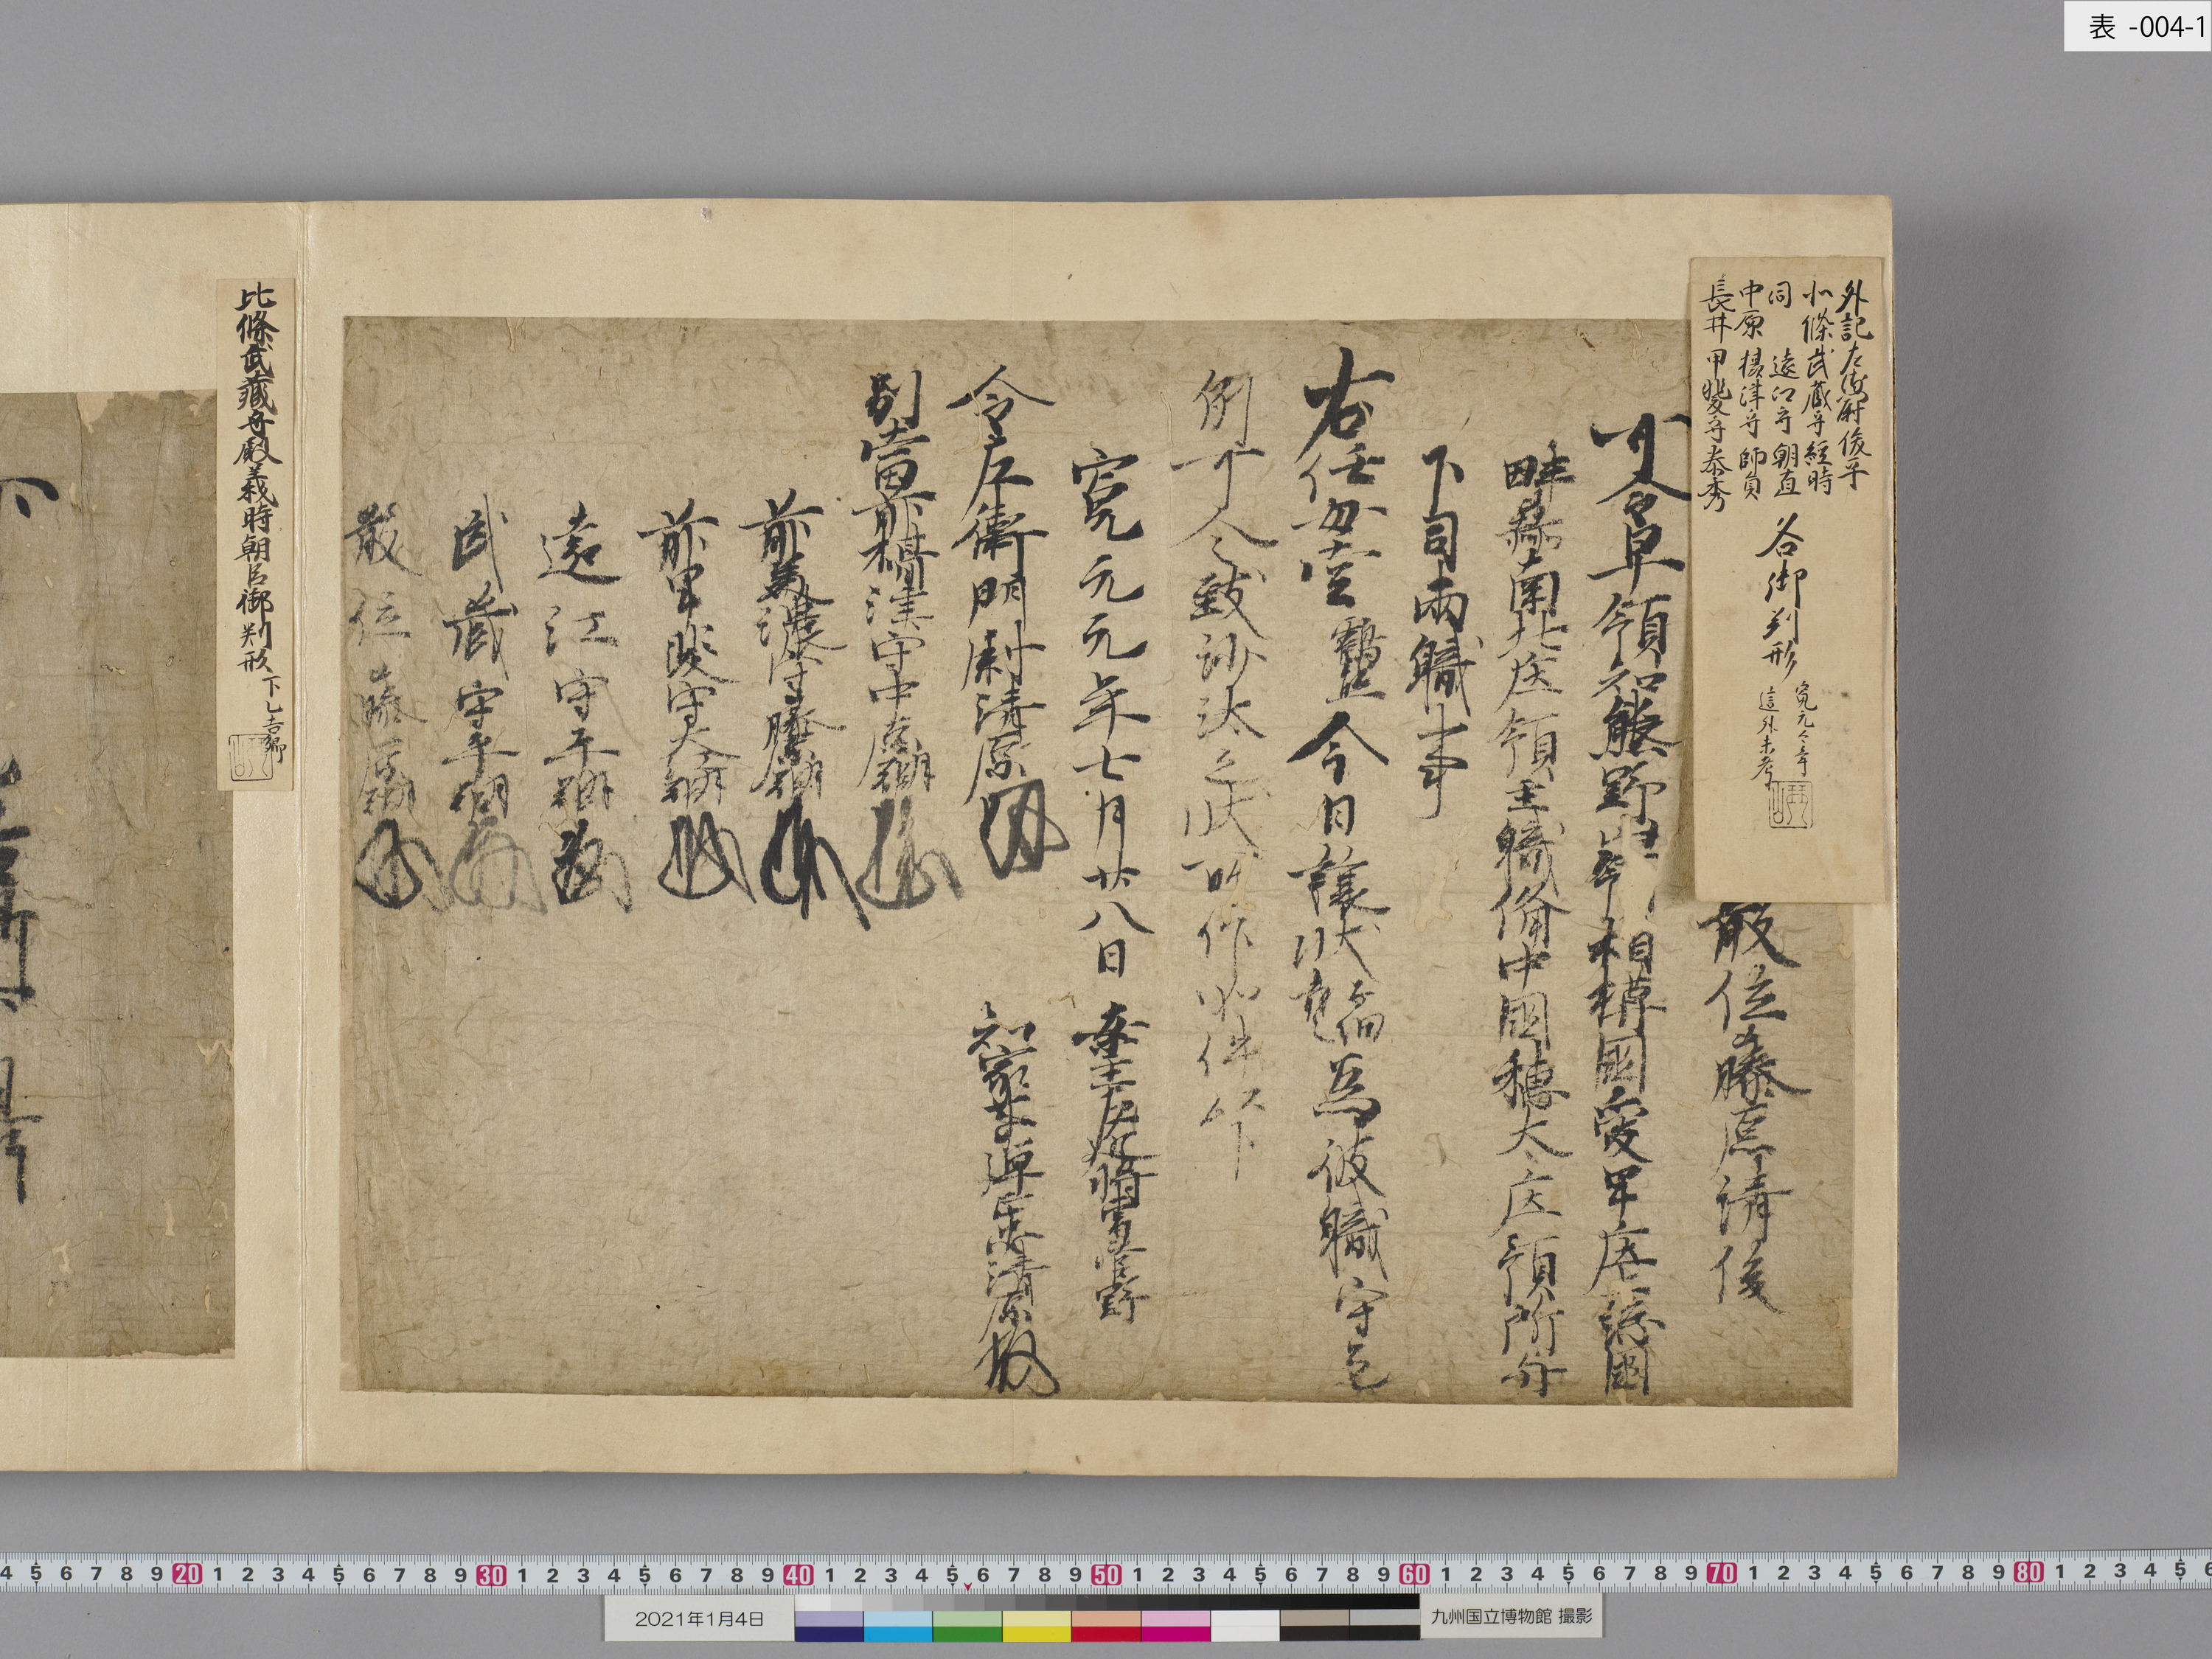 表 -004-1
外記左衛門尉俊平
北條武蔵守経時
同 遠江守朝直
中原摂津守師員
長井甲斐守泰秀
各御判形
寛元々年
這外未考
散位藤原清俊
可令早領知熊野山領相模國愛甲庄、諸國
畔蒜南北庄領主職、備中國穂太庄領所并
下司兩職事
右任如
今日譲状、為彼職、守先
例可令致沙汰之状、所仰如件、以下
寛元元年七月廿八日 案主左近将曹菅野
令左衛門尉清原
知家事弾正忠清原
別當前摂津守中原朝臣
前美濃守藤原朝臣
前甲斐守大江朝臣
遠江守平朝臣
武蔵守平朝臣
散位藤原朝臣
北條武蔵守殿義時朝臣御判形
下
2021年1月4日
九州国立博物館 撮影